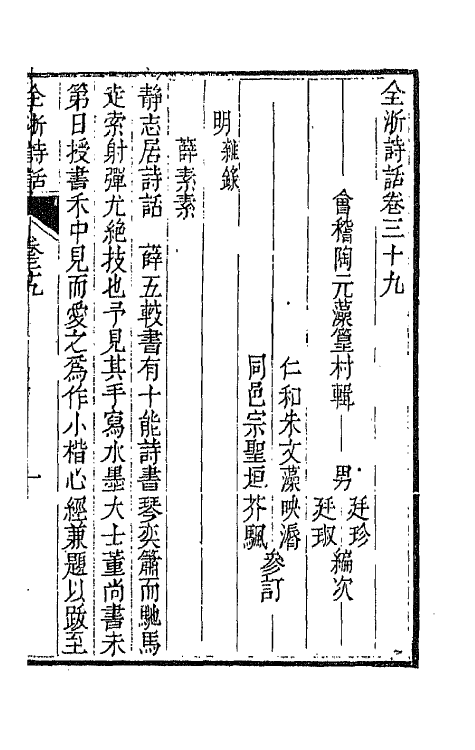 全浙詩話卷三十九
會稽陶元藻篁村輯 男 廷珍 廷珝 編次
仁和朱文藻映漘
同邑宗聖垣芥颿 參訂
明雜錄
薛素素
靜志居詩話 薛五較書有十能詩書琴奕簫而馳馬
走索射彈尤絕技也予見其手寫水墨大士董尚書未
第日授書禾中見而愛之爲作小楷心經兼題以跋至
全浙詩話 卷三十九 一